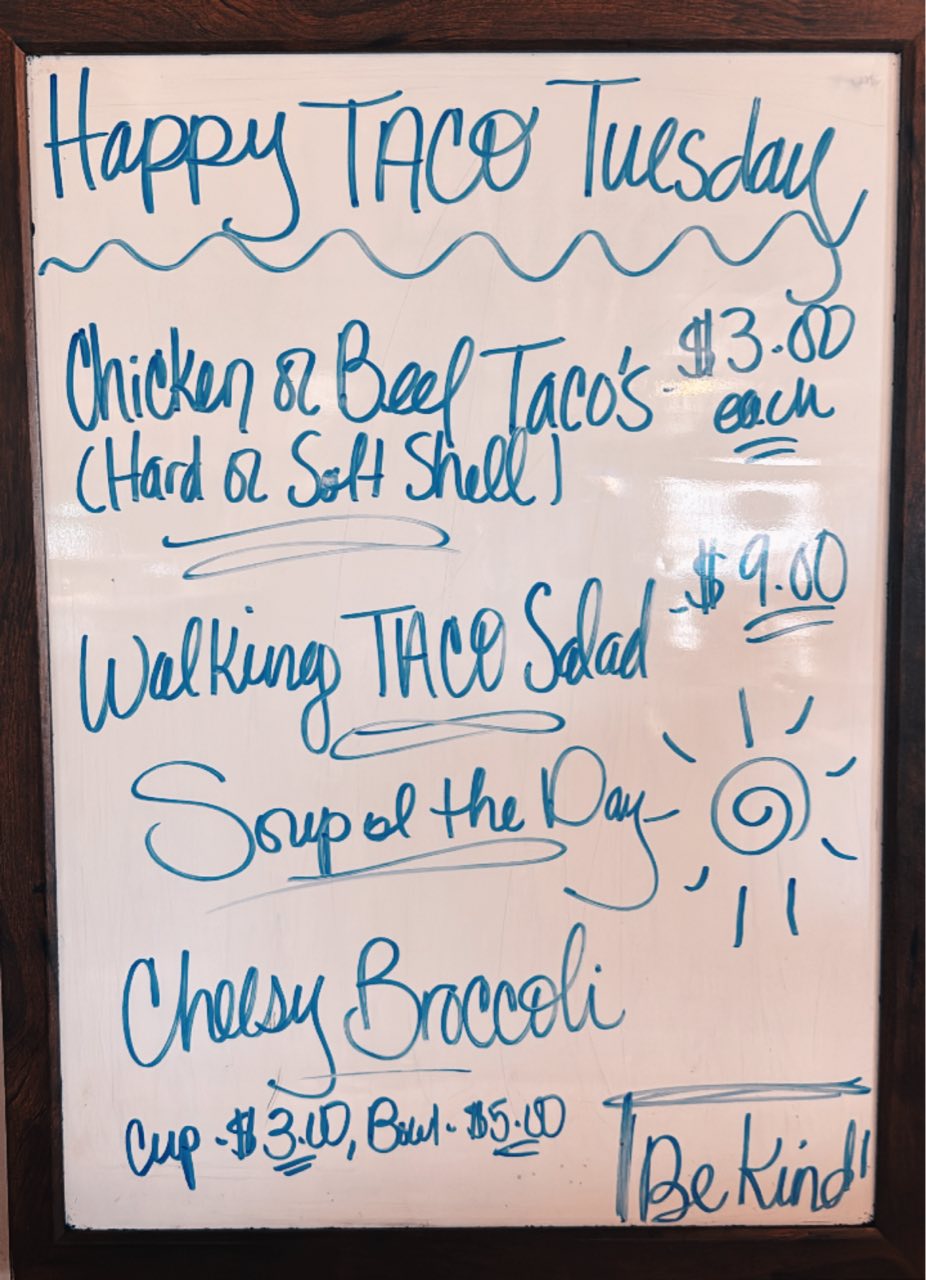 Happy TACO Tuesday
Chicken or Beef Taco's - $3.00
each
(Hard or Soft Shell)
Walking TACO Salad - $9.00
Soup of the Day -
Cheesy Broccoli
Cup - $3.00, Bowl - $5.00
"Be Kind"